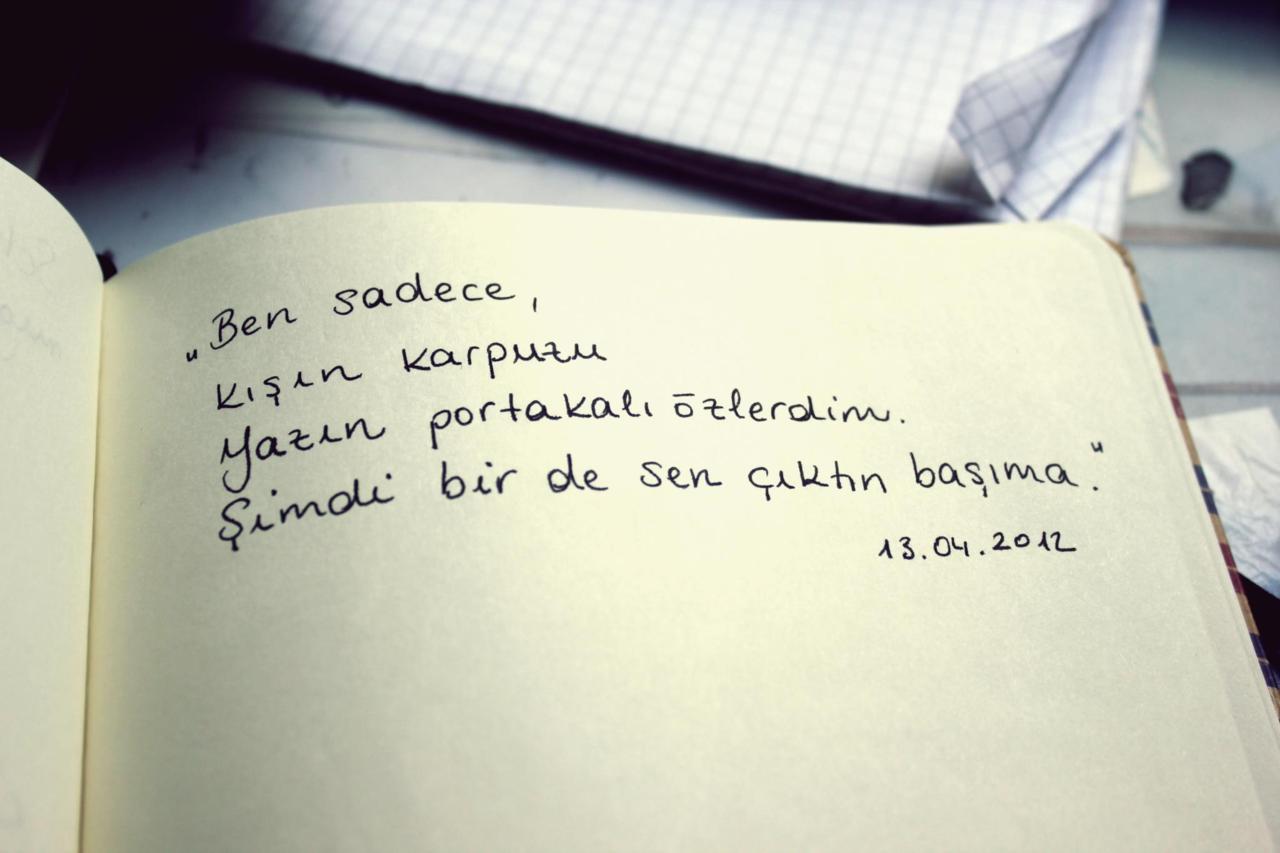 „Ben sadece,
kışın karpuzu
Yazın portakalı özlerdim.
Şimdi bir de sen çıktın başıma."
13.04.2012